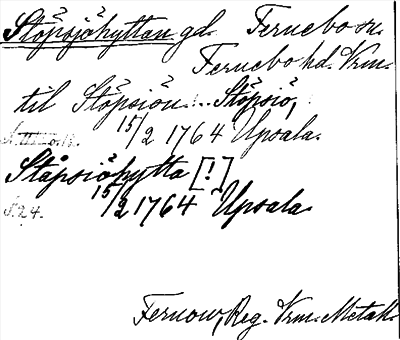 Stöpsjöhyttan gd. Fernebo sn.
Fernebo hd. Vrm.
till Stöpsiön... Stöpsiö,
15/2 1764 Upsala.
Ståpsiöhytta [!]
S. 24. 15/2 1764 Upsala.
Fernow, Reg. Vrm. Metall.